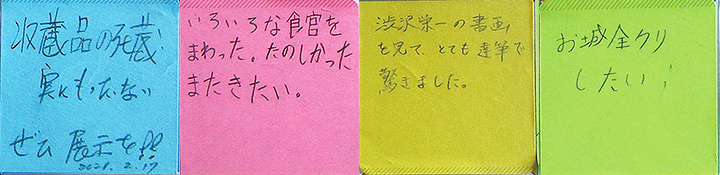 収蔵品の死蔵
実にもったいない
ぜひ 展示を!!
2021. 2. 17
いろいろな食官を
まわった。たのしかった
またきたい。
渋沢栄一の書画
を見て、とても達筆で
驚きました。
お城全クリ
したい!